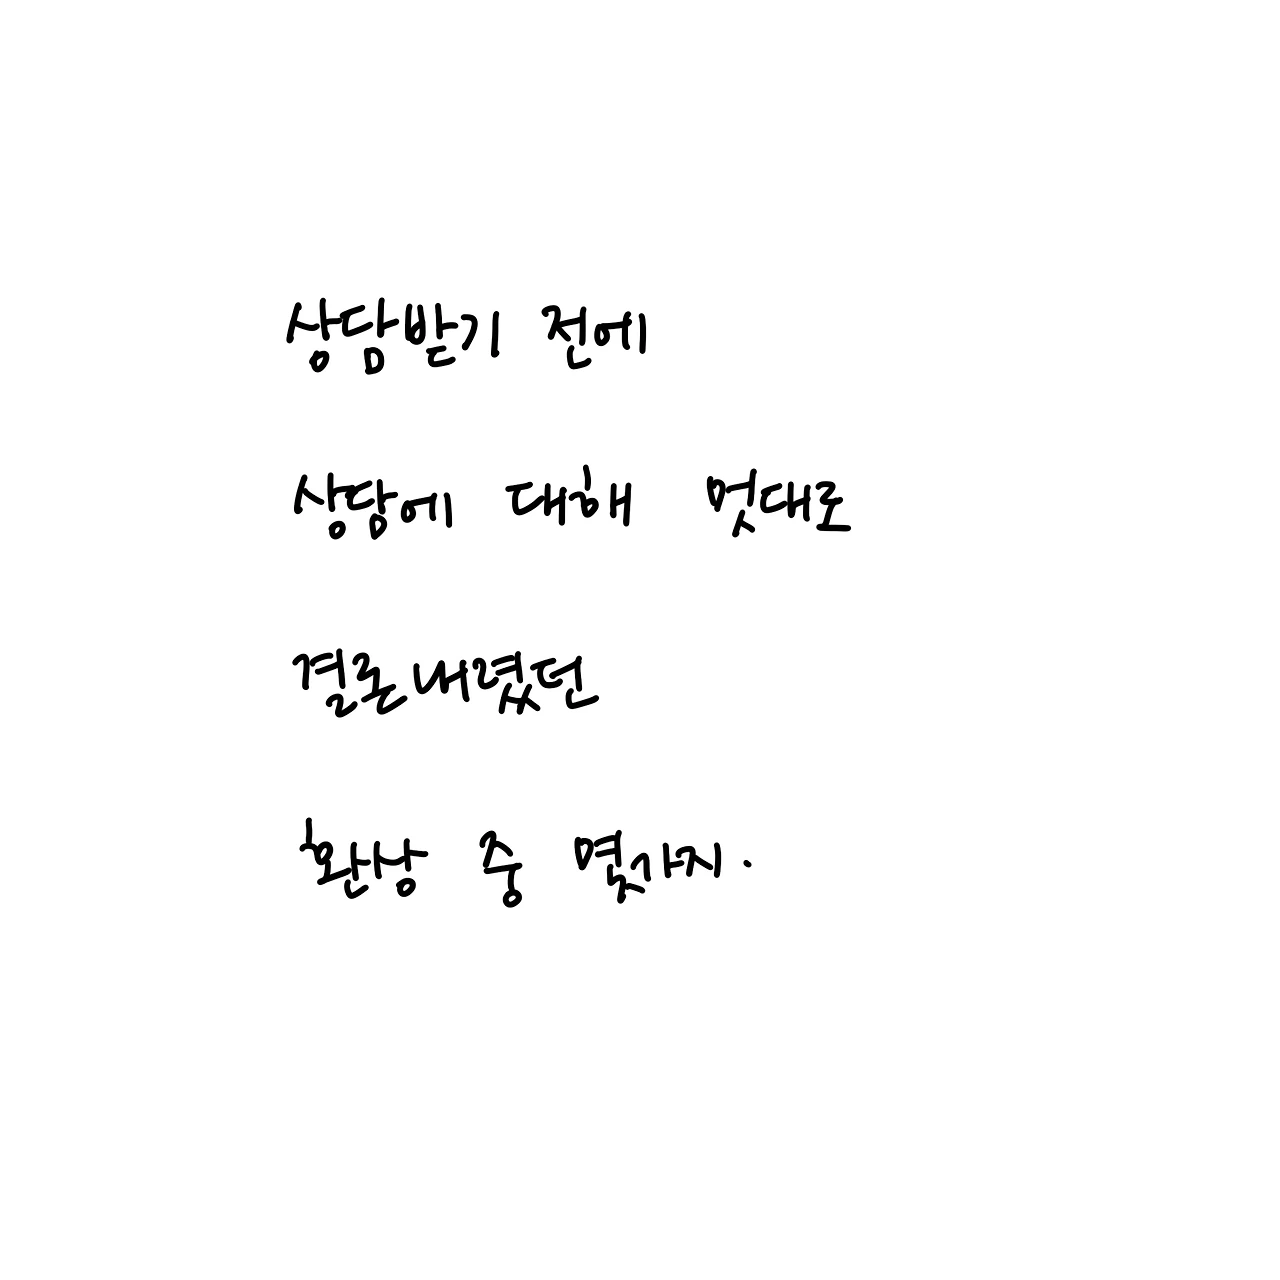 상담받기 전에
상담에 대해 멋대로
결론내렸던
환상 중 몇가지.